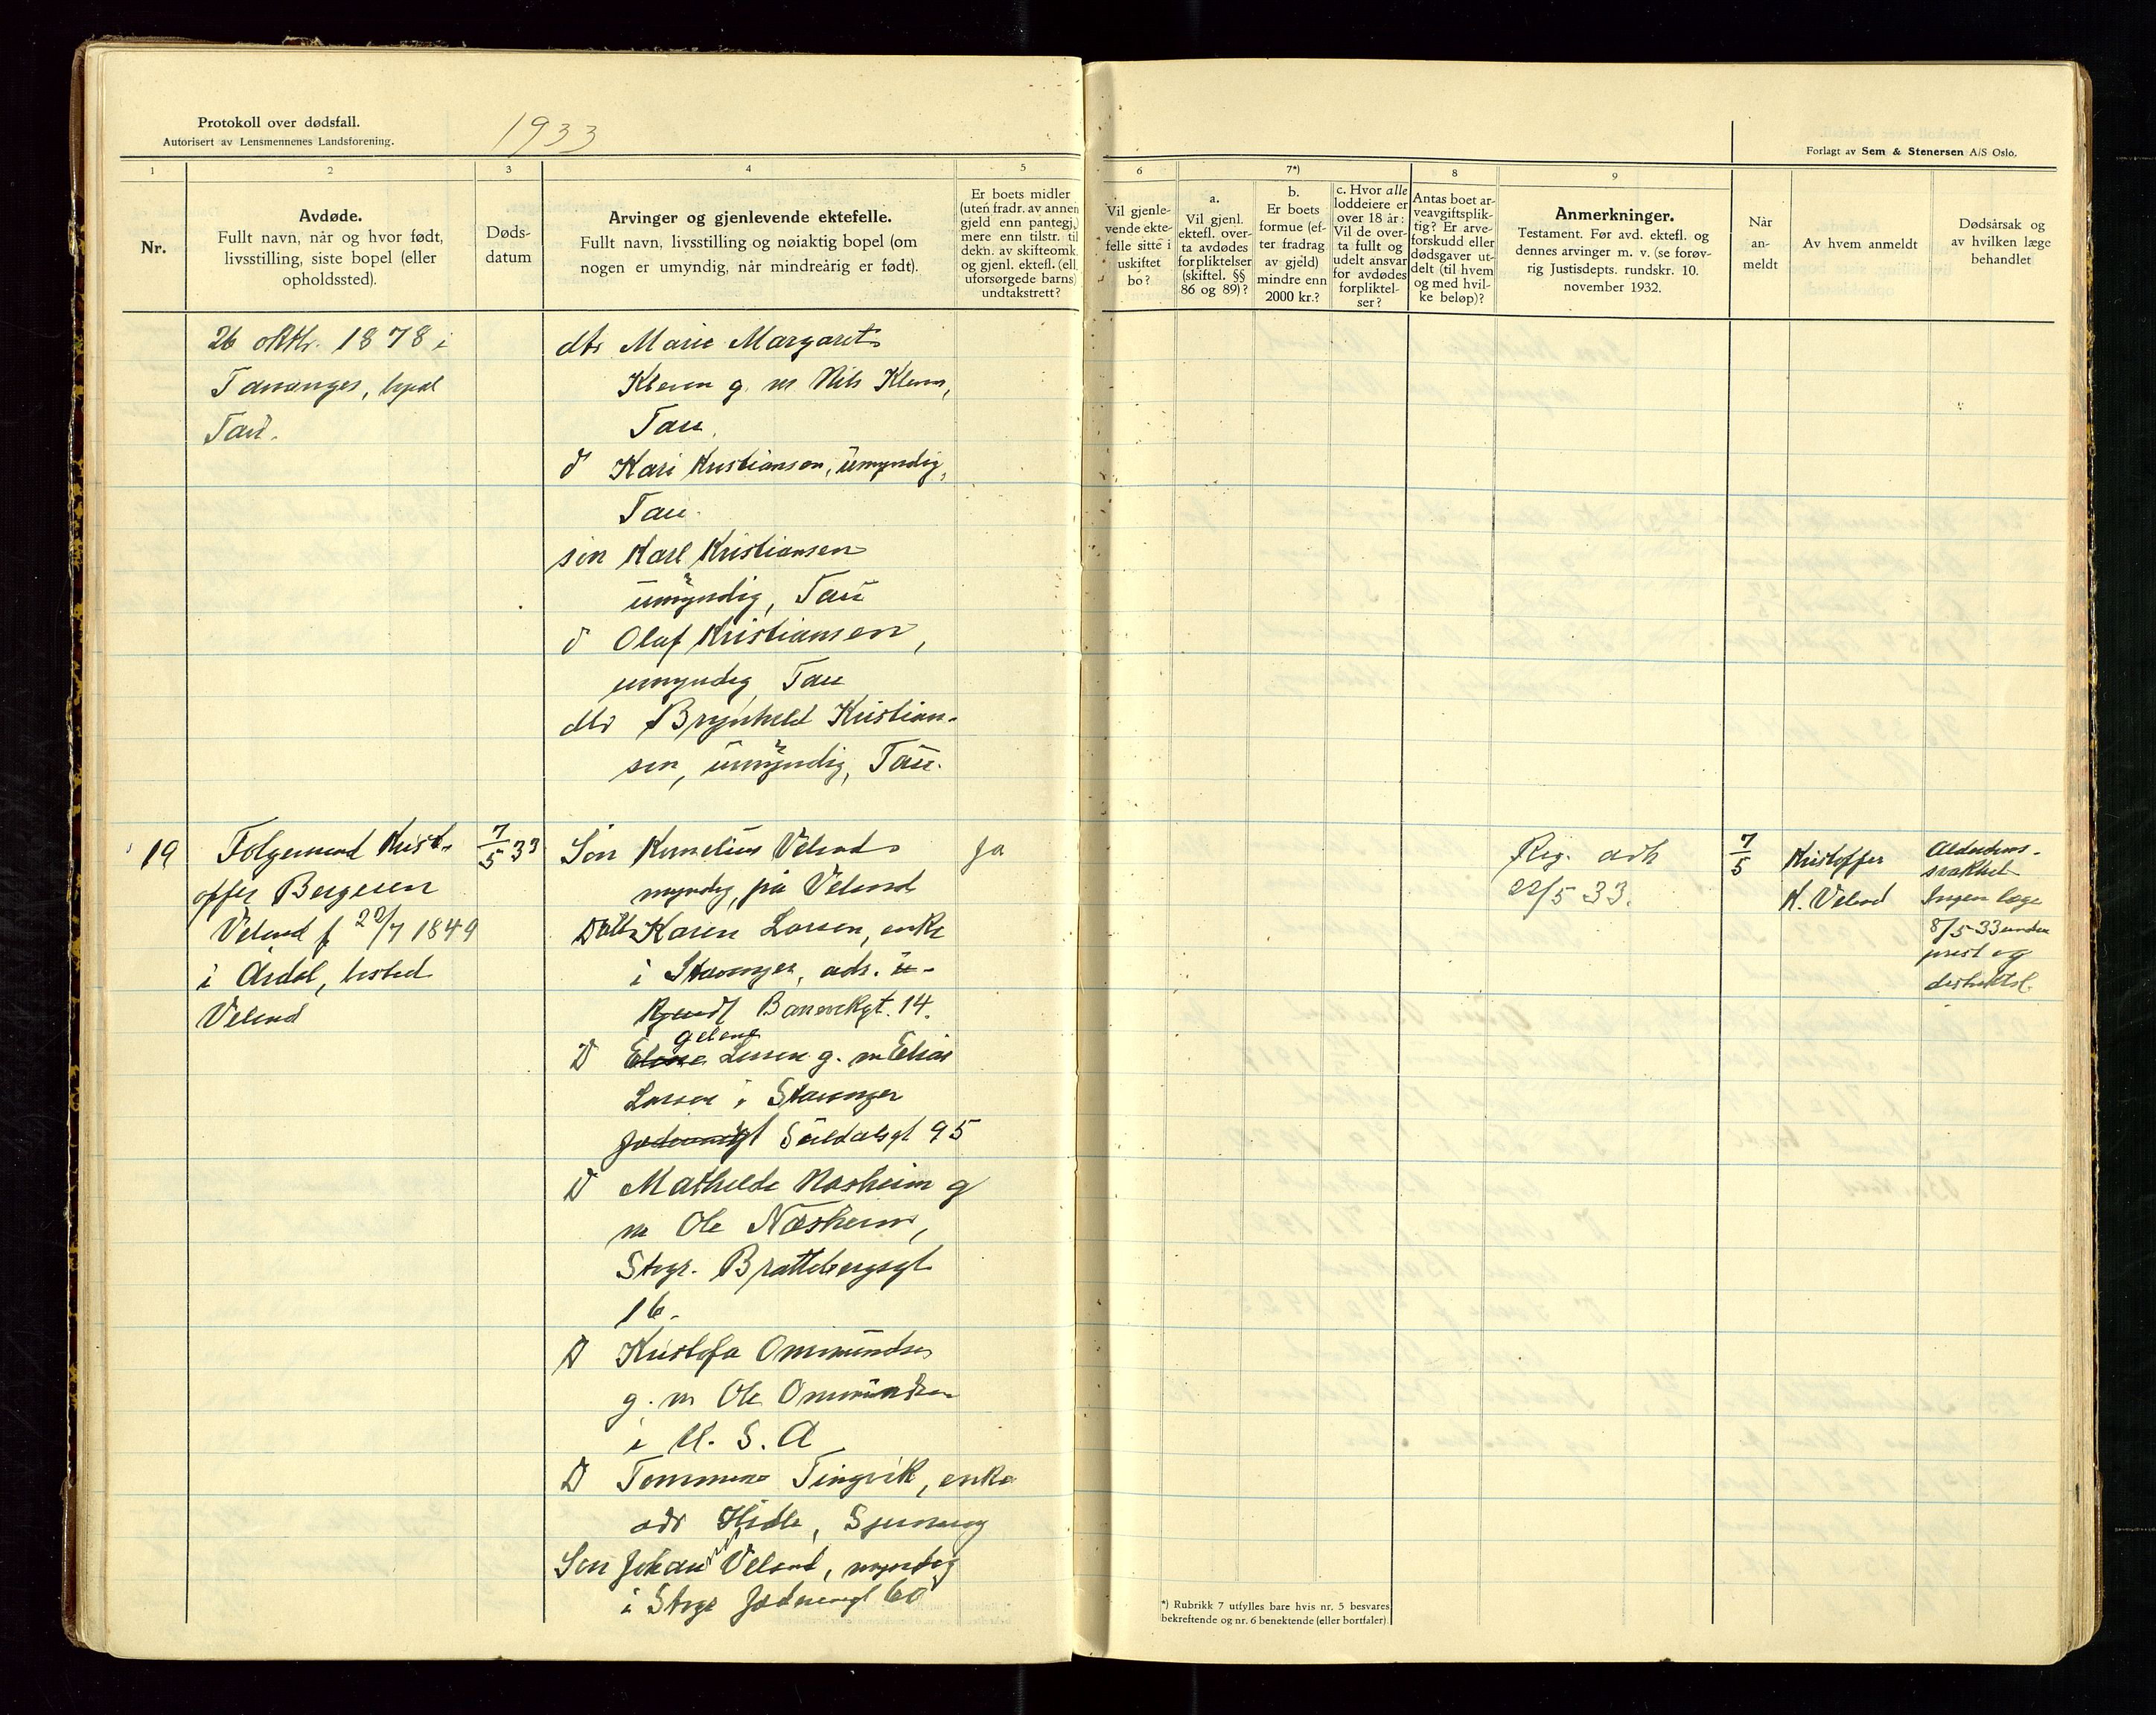 Protokoll over dødsfall.
Autorisert av Lensmennenes Landsforening.
1933
Forlagt av Sem & Stenersen A/S Oslo.
1
2
3
4
5
6
7*)
8
9
Nr.
Avdøde.
Fullt navn, når og hvor født,
livsstilling, siste bopel (eller
opholdssted).
Døds-
datum
Arvinger og gjenlevende ektefelle.
Fullt navn, livsstilling og nøiaktig bopel (om
nogen er umyndig, når mindreårig er født).
Er boets midler
(uten fradr. av annen
gjeld enn pantegj.)
mere enn tilstr. til
dekn. av skifteomk.
og gjenl. ektefl. (ell.
uforsørgede barns)
undtakstrett?
Vil gjenle-
vende ekte-
felle sitte i
uskiftet
bo?
a.
Vil gjenl.
ektefl. over-
ta avdødes
forpliktelser
(skiftel. §§
86 og 89)?
b.
Er boets
formue (ef-
ter fradrag
av gjeld)
mindre enn
2000 kr.?
c. Hvor alle
loddeiere er
over 18 år:
Vil de over-
ta fullt og
udelt ansvar
for avdødes
forpliktel-
ser?
Antas boet ar-
veavgiftsplik-
tig? Er arve-
forskudd eller
dødsgaver ut-
delt (til hvem
og med hvil-
ke beløp)?
Anmerkninger.
Testament. Før avd. ektefl. og
dennes arvinger m. v. (se forøv-
rig Justisdepts. rundskr. 10.
november 1932.
Når
an-
meldt
Av hvem anmeldt
Dødsårsak og
av hvilken læge
behandlet
26 oktbr. 1878 i
Tananger, bopel
Tau.
dtr Marie Margaret
Kleven g m Nils Kleven,
Tau.
d Kari Kristiansen, umyndig,
Tau.
søn Karl Kristiansen
umyndig, Tau
d Olaf Kristiansen,
umyndig Tau
dtr Brynhild Kristian-
sen, umyndig, Tau.
19
Følgemand Krist-
offer Bergesen
Veland f 22/7 1849
i Årdal, bosted
Veland
7/5 33
Søn Kornelius Veland
myndig, på Veland
Dattr Karen Larsen, enke
i Stavanger, adr. u-
kjendt Banevkgt. 14.
D Elene Larsen g. m Elias
Larsen i Stavanger
Suldalsgt 95
D Mathilde Næsheim g
m Ole Næsheim,
Stvgr. Brattebergsgt
16.
D Kristofa Ommundsen
g. m Ole Ommundsen
i U. S. A
D Tommine Tingvik, enke
adr Hidle, Sjernerøy
Søn Johan Veland, myndig
i Stvgr Jædernesgt 60
Ja
Reg. adr
22/5 33.
7/5
Kristoffer
K. Veland
Alderdoms-
svakhet
Ingen læge
8/5-33 under
prest og
distriktsl.
*) Rubrikk 7 utfylles bare hvis nr. 5 besvares
bekreftende og nr. 6 benektende (eller bortfaler).